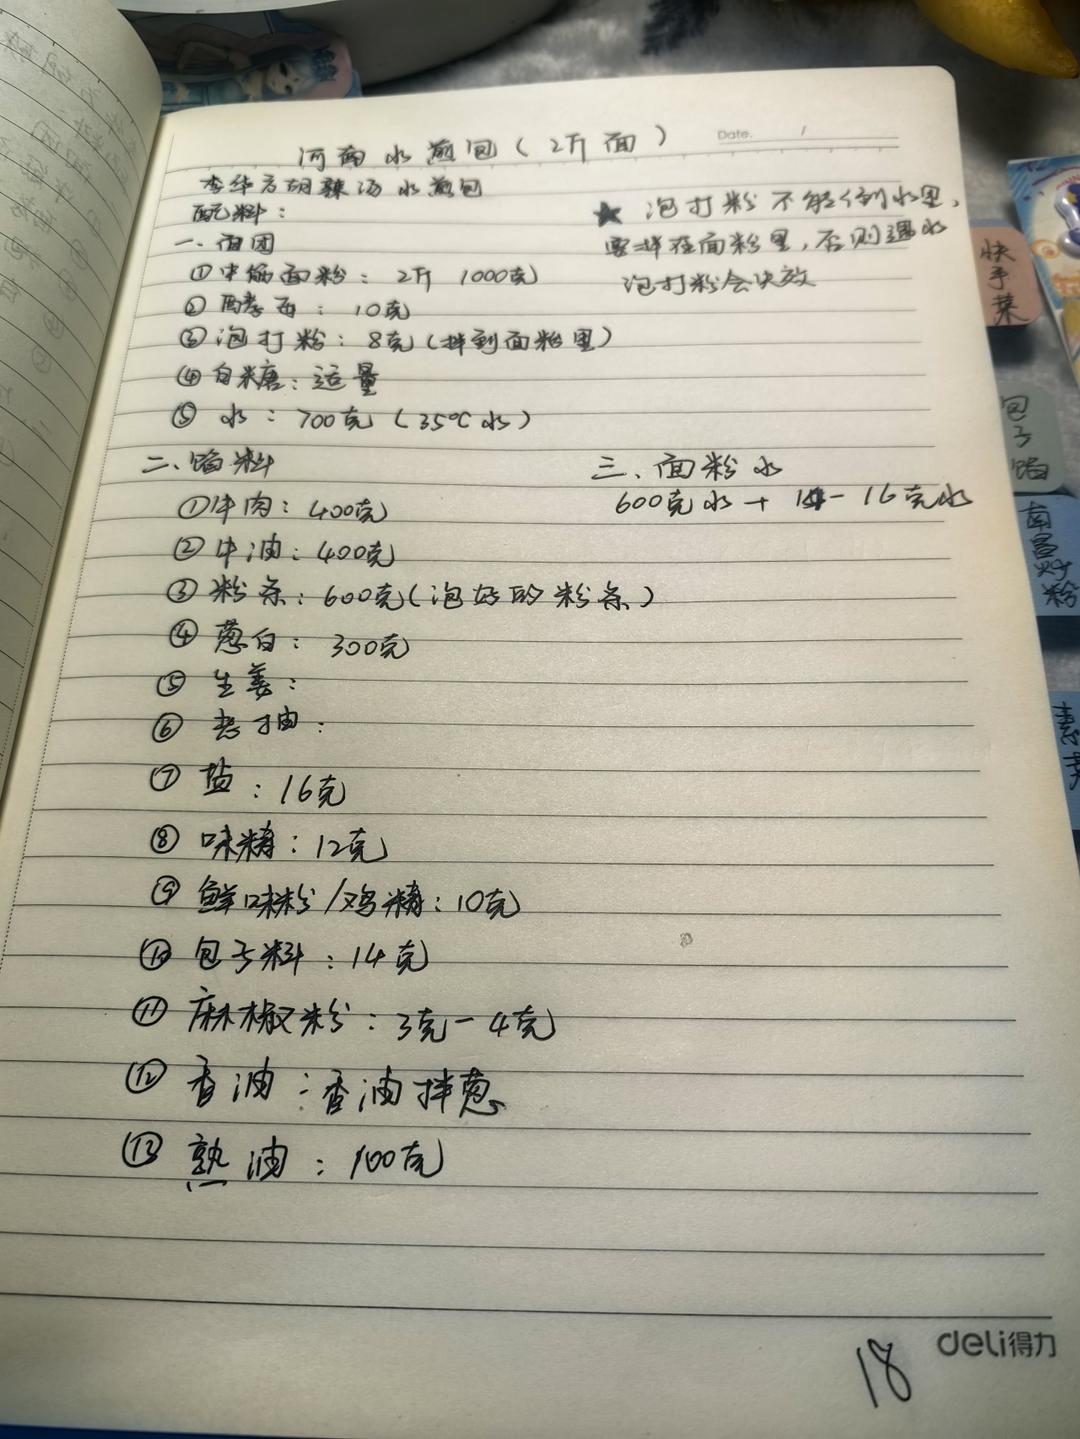 Date.
河南水煎包(2斤面)
李华方胡辣汤水煎包
配料:
★ 泡打粉不能倒水里,
要拌在面粉里,否则遇水
泡打粉会失效
一、面团
①中筋面粉:2斤 1000克
②酵母:10克
③泡打粉:8克(拌到面粉里)
④白糖:适量
⑤水:700克(35℃水)
二、馅料
①牛肉:400克
②牛油:400克
③粉条:600克(泡好的粉条)
④葱白:300克
⑤生姜:
⑥老抽:
⑦盐:16克
⑧味精:12克
⑨鲜味粉/鸡精:10克
⑩包子料:14克
⑪麻椒粉:3克-4克
⑫香油:香油拌葱
⑬熟油:100克
三、面粉水
600克水+14-16克水
18
deli得力
快手菜
包子馅
南昌炒粉